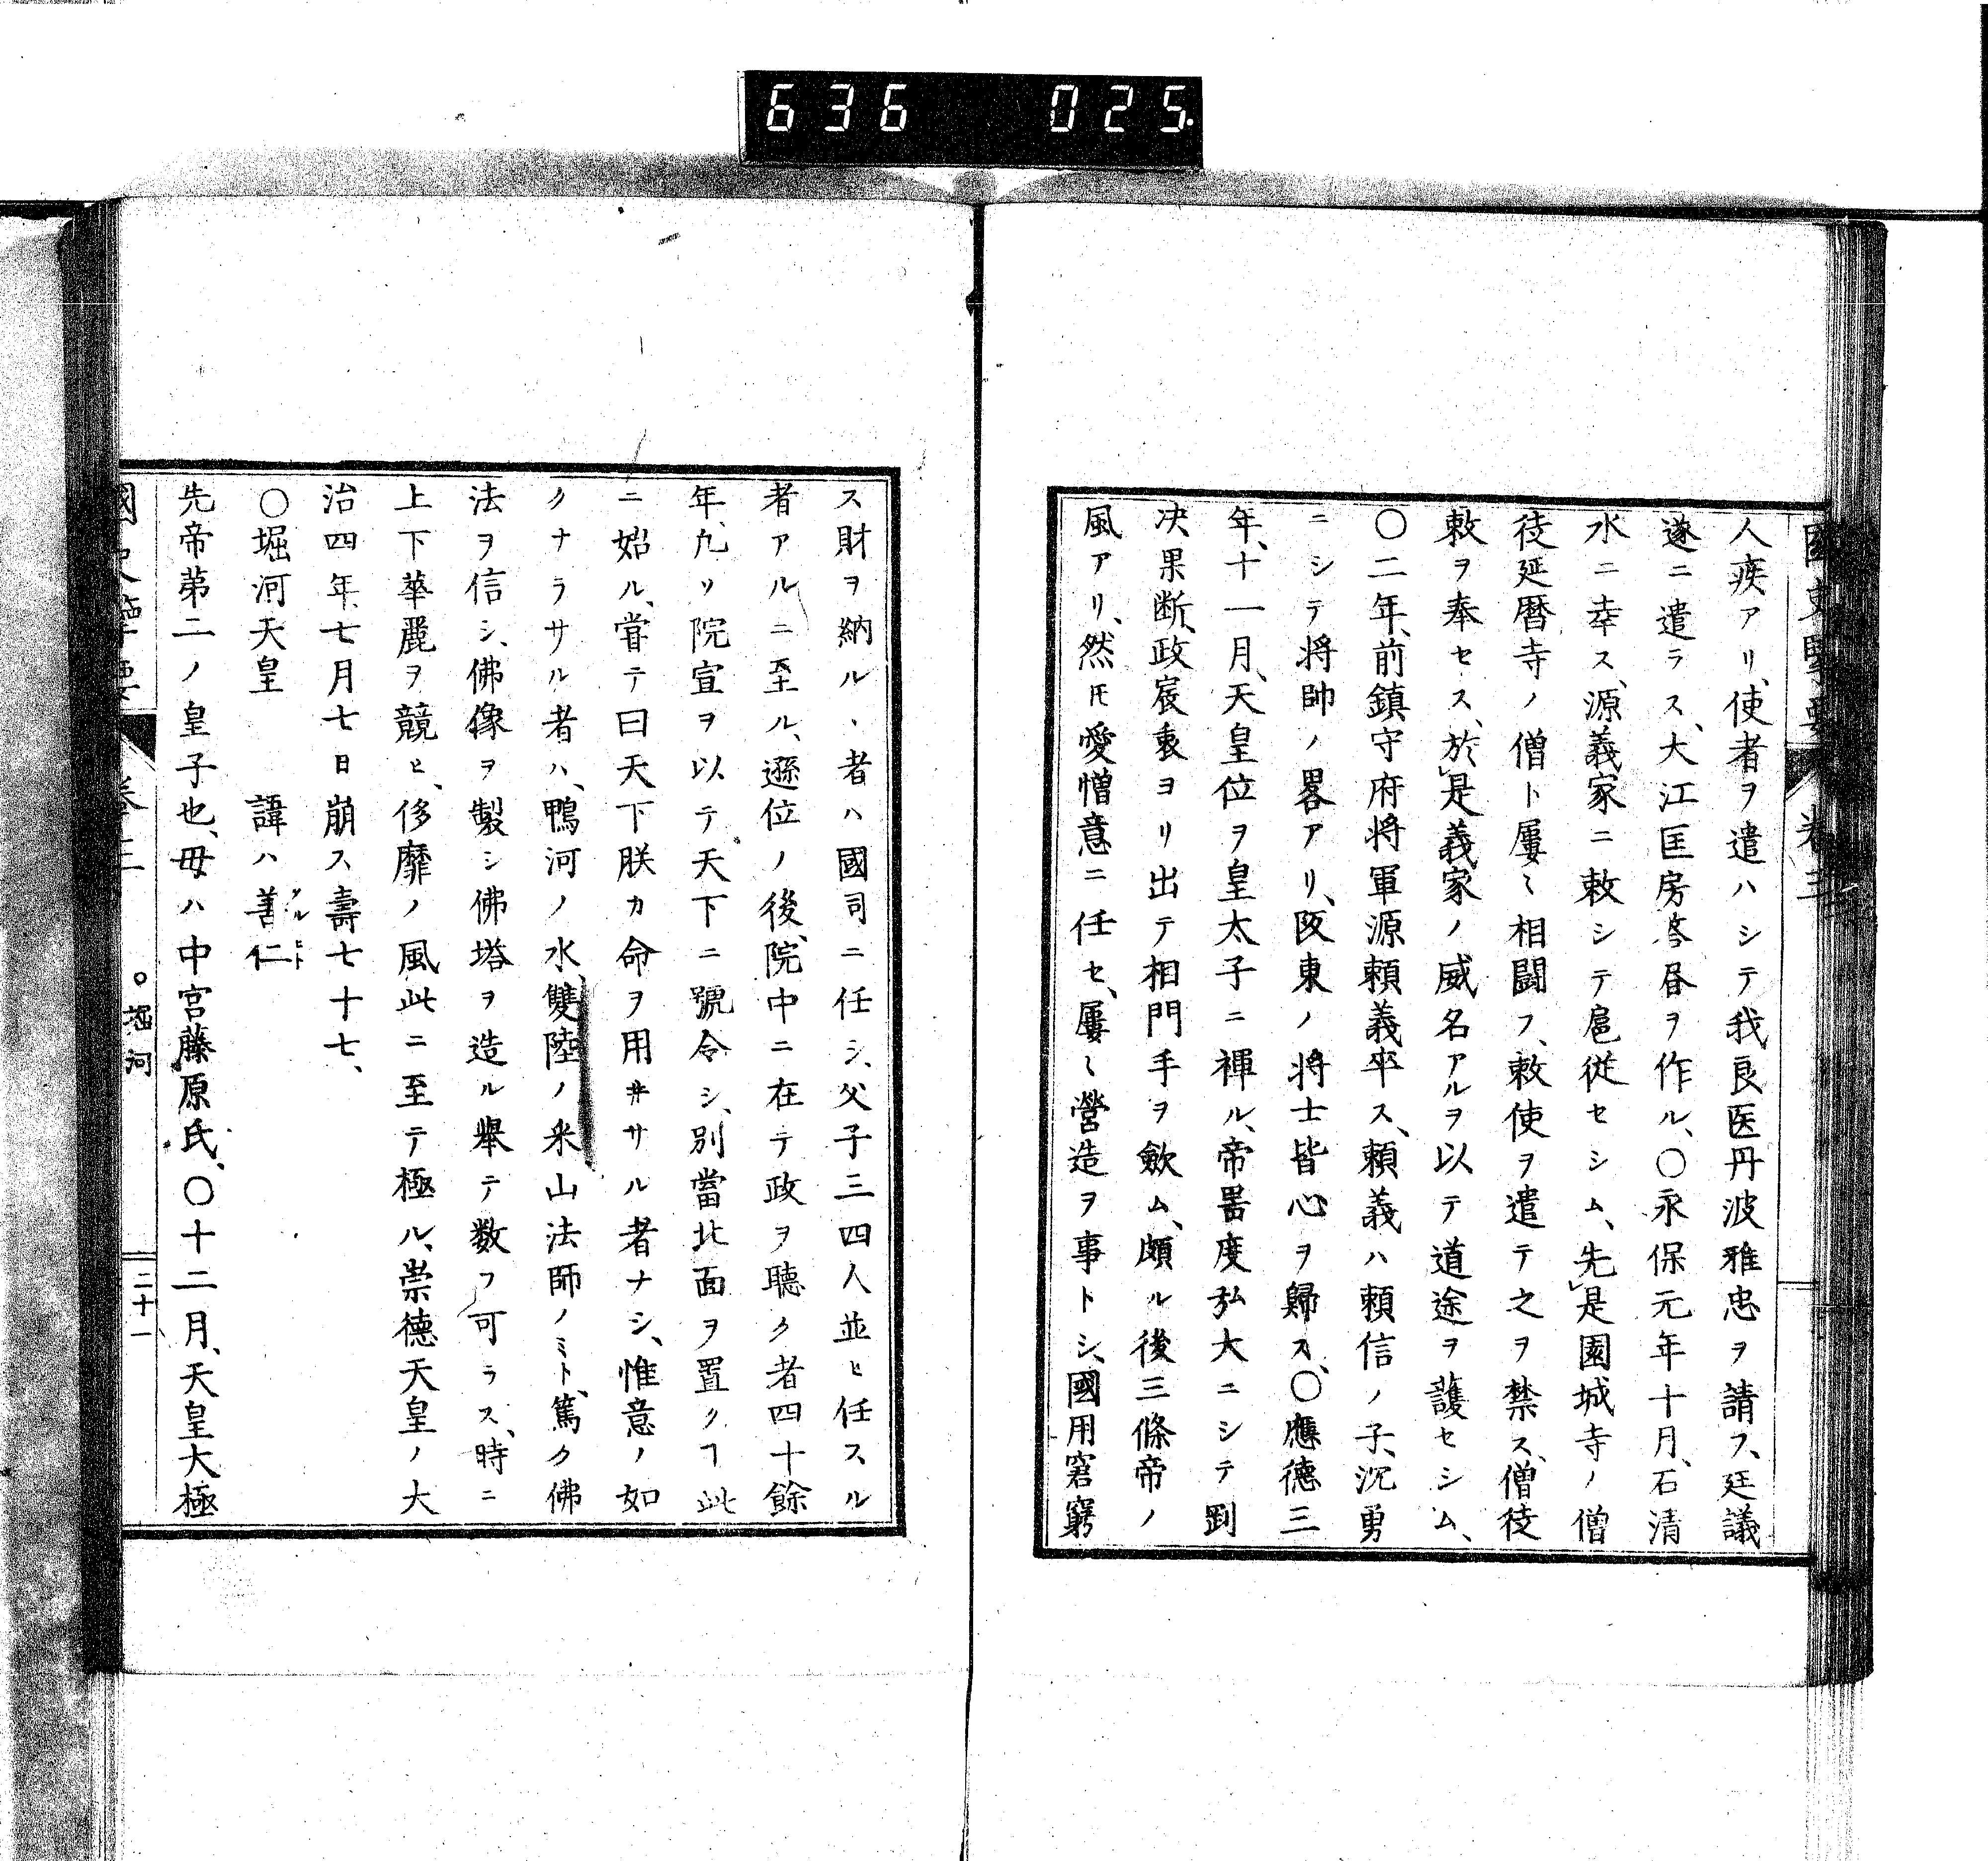 636 025
人疾アリ、使者ヲ遣ハシテ我良医丹波雅忠ヲ請フ、廷議
遂ニ遣ラス、大江匡房答書ヲ作ル、〇永保元年十月、石清
水ニ幸ス、源義家ニ敕シテ扈従セシム、先是園城寺ノ僧
徒延暦寺ノ僧ト屡〻相闘フ、敕使ヲ遣テ之ヲ禁ス、僧徒
敕ヲ奉セス、於是義家ノ威名アルヲ以テ道途ヲ護セシム、
〇二年、前鎮守府将軍源頼義卒ス、頼義ハ頼信ノ子、沉勇
ニシテ将帥ノ畧アリ、阪東ノ将士皆心ヲ歸ス、〇應德三
年、十一月、天皇位ヲ皇太子ニ禪ル、帝噐度弘大ニシテ剛
决果断、政宸衷ヨリ出テ相門手ヲ歛ム、頗ル後三條帝ノ
風アリ、然𪜈愛憎意ニ任セ、屡〻營造ヲ事トシ、國用窘窮
ス財ヲ納ル、者ハ國司ニ任シ、父子三四人並ヒ任スル
者アルニ至ル、遜位ノ後、院中ニ在テ政ヲ聴ク者四十餘
年、凡ソ院宣ヲ以テ天下ニ號令シ、別當北面ヲ置クヿ此
ニ始ル、嘗テ曰天下朕カ命ヲ用ヰサル者ナシ、惟意ノ如
クナラサル者ハ、鴨河ノ水、雙陸ノ采山法師ノミト、篤ク佛
法ヲ信シ、佛像ヲ製シ佛塔ヲ造ル舉テ数フ可ラス、時ニ
上下華麗ヲ競ヒ、侈靡ノ風此ニ至テ極ル、崇德天皇ノ大
治四年、七月七日崩ス壽七十七、
〇堀河天皇 諱ハ善仁
先帝第二ノ皇子也、母ハ中宮藤原氏、〇十二月、天皇大極
國史擥要 卷三 〇堀河 二十一